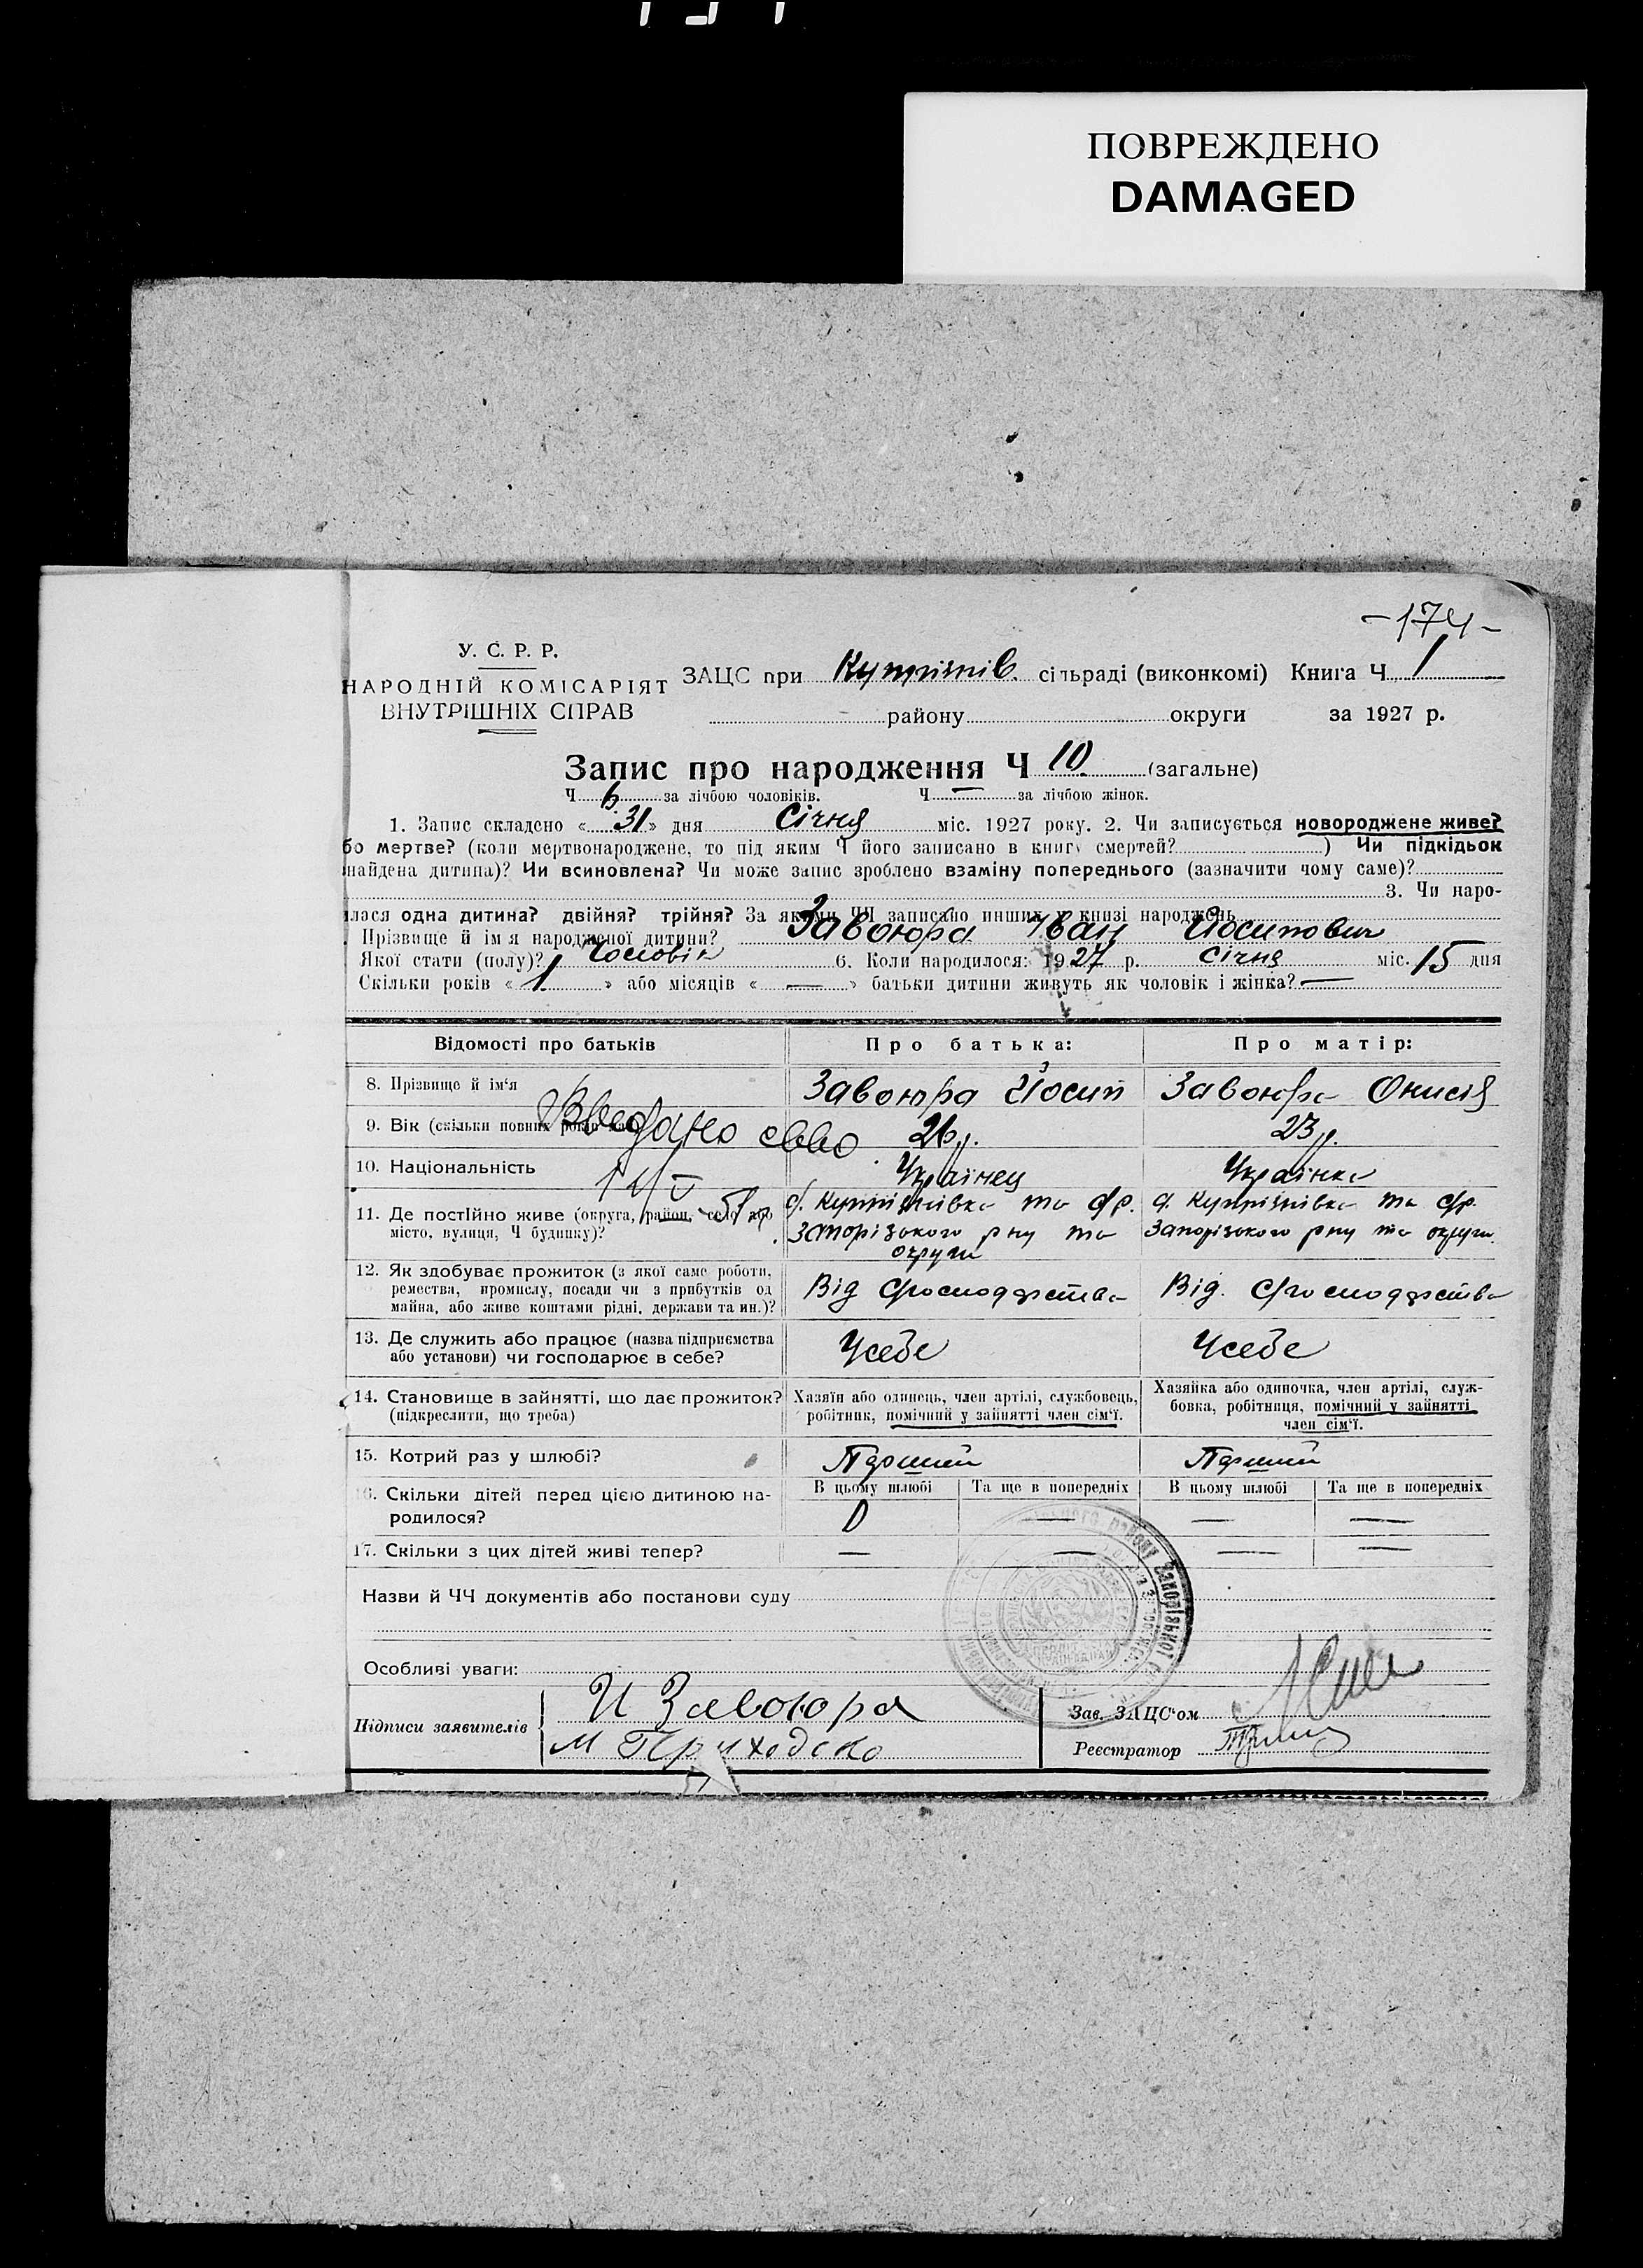 ПОВРЕЖДЕНО
DAMAGED
-174-
У. С. Р. Р.
НАРОДНІЙ КОМІСАРІЯТ
ВНУТРІШНІХ СПРАВ
ЗАЦС при Кутрішнів. сільраді (виконкомі) Книга Ч 1
району округи за 1927 р.
Запис про народження Ч 10 (загальне)
Ч 6 за лічбою чоловіків. Ч — за лічбою жінок.
1. Запис складено « 31 » дня Січня міс. 1927 року. 2. Чи записується новороджене живе?
бо мертве? (коли мертвонароджене, то під яким Ч його записано в книгу смертей? ) Чи підкідьок
знайдена дитина)? Чи всиновлена? Чи може запис зроблено взаміну попереднього (зазначити чому саме)?
3. Чи наро-
лася одна дитина? двійня? трійня? За якими ЧЧ записано инших у книзі народжень
Прізвище й ім'я народженої дитини? Завоюра Іван Йосипович
Якої статі (полу)? Чоловік 6. Коли народилося: 1927 р. Січня міс. 15 дня
Скільки років « 1 » або місяців « — » батьки дитини живуть як чоловік і жінка? —
Відомості про батьків Про батька: Про матір:
8. Прізвище й ім'я Завоюра Йосип Завоюра Онисія
9. Вік (скільки повних років має) 26 р. 23 р.
Видано
10. Національність Українец Українка
11. Де постійно живе (округа, район, село або
місто, вулиця, Ч будинку)?
Запорізького р-ну та округи
Запорізького р-ну та округи.
12. Як здобуває прожиток (з якої саме роботи,
ремества, промислу, посади чи з прибутків од
майна, або живе коштами рідні, держави та ин.)?
Від Господарства Від. Господарства
13. Де служить або працює (назва підприємства
або установи) чи господарює в себе?
Усебе Усебе
14. Становище в зайнятті, що дає прожиток?
(підкреслити, що треба)
Хазяїн або одинець, член артілі, службовець,
робітник, помічний у зайнятті член сім'ї.
Хазяйка або одиночка, член артілі, служ-
бовка, робітниця, помічний у зайнятті
член сім'ї.
15. Котрий раз у шлюбі? Перший Перший
16. Скільки дітей перед цією дитиною на-
родилося?
В цьому шлюбі Та ще в попередніх В цьому шлюбі Та ще в попередніх
0 — — —
17. Скільки з цих дітей живі тепер? — — — —
Назви й ЧЧ документів або постанови суду
Особливі уваги:
Підписи заявителів И Завоюра
М Приходько
Зав. ЗАЦС'ом
Реєстратор